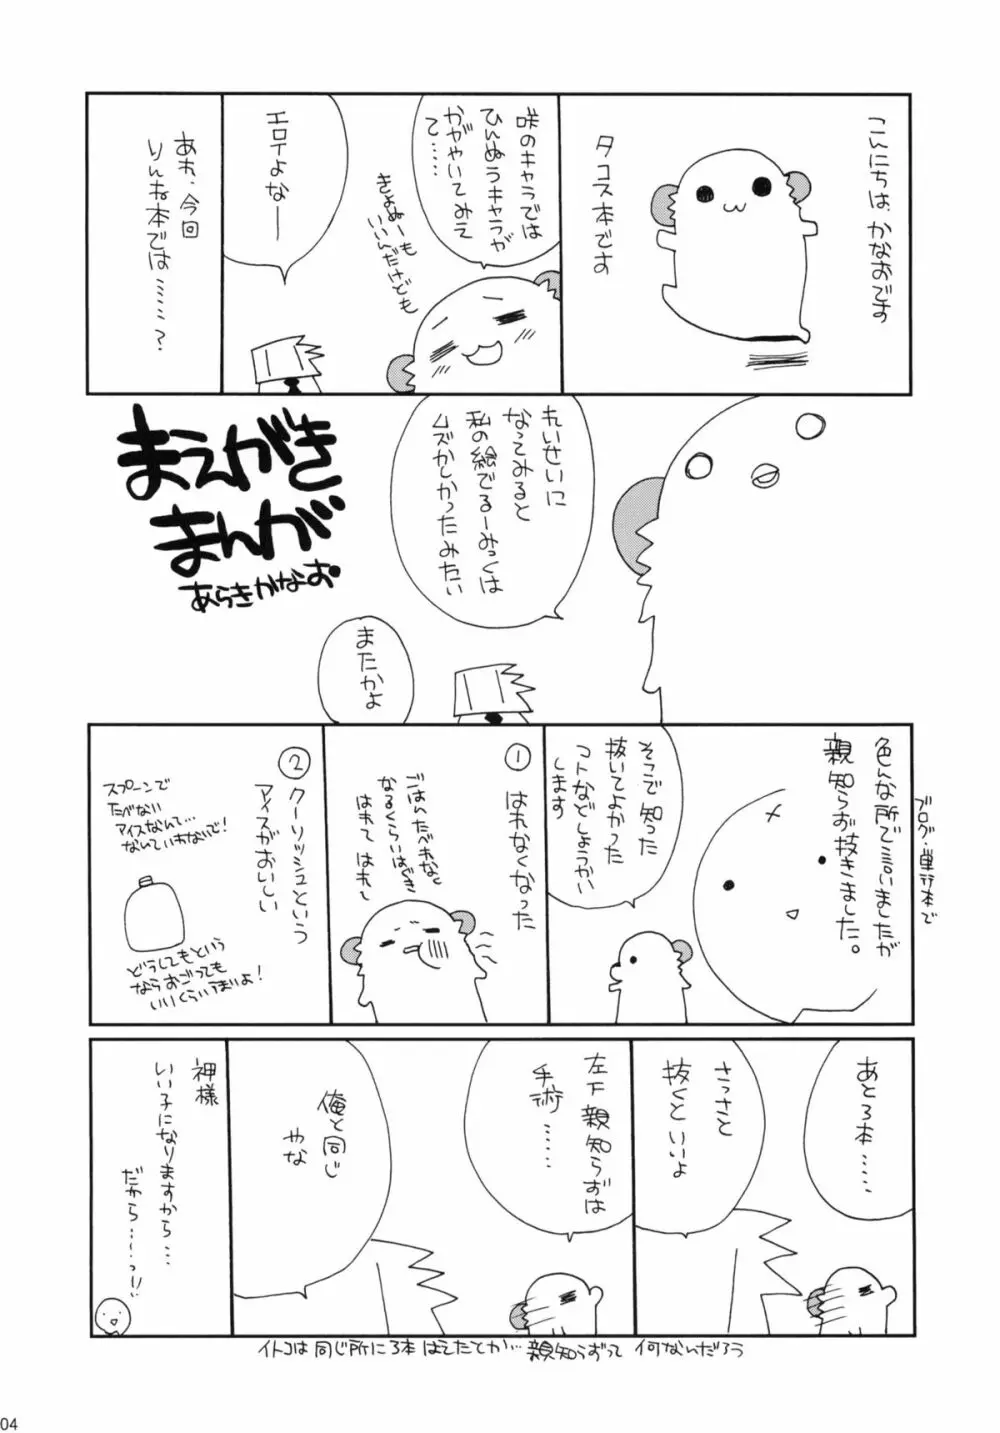 こんにちは、かなおです
タコス本です
咲のキャラでは
ひんぬうキャラが
かがやいてみえ
て……
きょぬーも
いいんだけども
エロイよな―
あれ、今回
りんね本では……?
まえがき
まんが
あらきかなお
れいせいに
なってみると
私の絵でるーみっくは
ムズかしかったみたい
またかよ
ブログ・単行本で
色んな所で言いましたが
親知らず抜きました。
そこで知った
抜いてよかった
コトなどしょうかい
します
① はれなくなった
ごはんたべれなく
なるくらいはぐき
はれて はれし
② クーリッシュという
アイスがおいしい
スプーンで
たべない
アイスなんて…
なんていわないで!
どうしてもという
ならおごっても
いいくらいうまいよ!
あと3本……
さっさと
抜くといいよ
左下親知らずは
手術……
俺と同じ
やな
神様
いい子になりますから…
だから……っ!!
イトコは同じ所に3本はえたてか… 親知らずって 何なんだろう
04